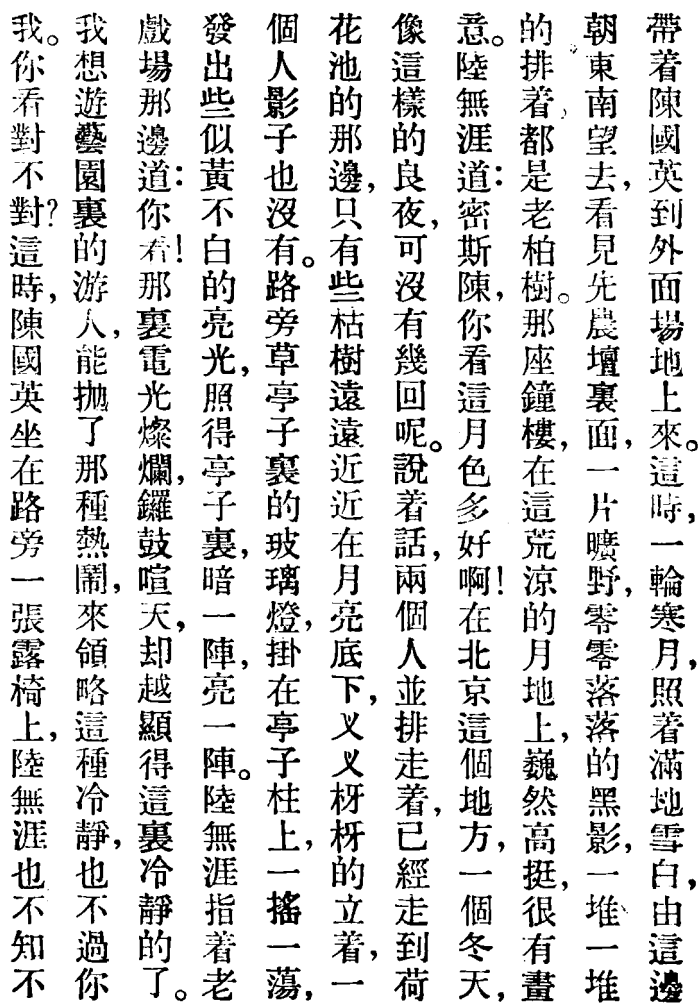 帶着陳國英到外面場地上來。這時，一輪寒月，照着滿地雪白，由這邊
朝東南望去，看見先農壇裏面，一片曠野，零零落落的黑影，一堆一堆
的排着，都是老柏樹。那座鐘樓，在這荒涼的月地上，巍然高挺，很有畫
意。陸無涯道：密斯陳，你看這月色多好啊！在北京這個地方，一個冬天，
像這樣的良夜，可沒有幾回呢。說着話，兩個人並排走着，已經走到荷
花池的那邊，只有些枯樹遠遠近近在月亮底下，叉叉枒枒的立着，一
個人影子也沒有。路旁草亭子裏的玻璃燈，掛在亭子柱上，一搖一蕩，
發出些似黃不白的亮光，照得亭子裏，暗一陣，亮一陣。陸無涯指着老
戲場那邊道：你看！那裏電光燦爛，鑼鼓喧天，却越顯得這裏冷靜的了。
我想遊藝園裏的游人，能拋了那種熱鬧，來領略這種冷靜，也不過你
我。你看對不對？這時，陳國英坐在路旁一張露椅上，陸無涯也不知不